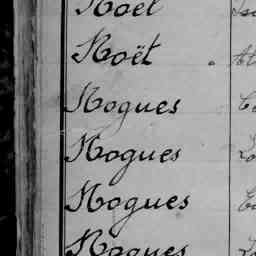 Noël
Noët
Nogues
Nogues
Nogues
Nogues